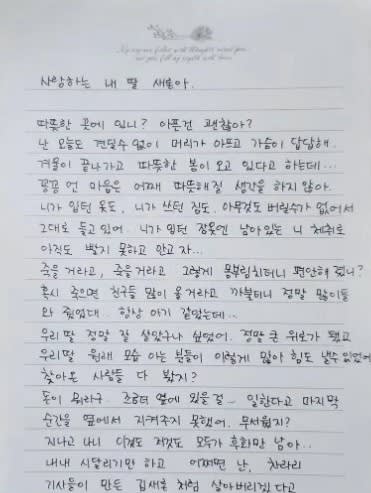 사랑하는 내 딸 새론아.
따뜻한 곳에 있니? 아픈건 괜찮아?
난 오늘도 견딜수 없이 머리가 아프고 가슴이 답답해.
겨울이 끝나가고 따뜻한 봄이 오고 있다고 하는데...
꽁꽁 언 마음은 어째 따뜻해질 생각을 하지 않아.
니가 입던 옷도, 니가 쓰던 짐도, 아무것도 버릴수가 없어서
그대로 들고 있어. 니가 입던 잠옷엔 남아있는 니 체취로
아직도 빨지 못하고 안고 자...
죽을 거라고, 죽을거라고 그렇게 몸부림치더니 편안해 졌니?
혹시 죽으면 친구들 많이 올거라고 까불더니 정말 많이들
와 줬었대. 항상 아기 같았는데...
우리딸 정말 잘 살았구나 싶었어. 정말 큰 위로가 됐고
우리딸 원래 모습 아는 분들이 이렇게 많아 힘도 낼수 있었어
찾아온 사람들 다 봤지?
돈이 뭐라구. 조금더 옆에 있을 걸~ 일한다고 마지막
순간을 옆에서 지켜주지 못했어. 무서웠지?
지나고 나니 이것도 저것도 모두가 후회만 남아...
내내 시달리기만 하고 어쩌면 난, 차라리
기사들이 만든 김새론 처럼 살아버리겠다고